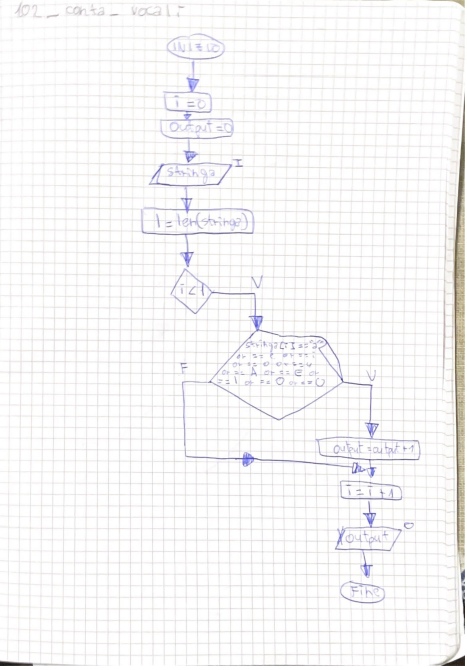 102_conta_vocali
INIZIO
i=0
output=0
stringa I
l=len(stringa)
i<l
V
stringa[i]=="a"
or == e or == i
or == o or == u
or == A or == E or
== I or == O or == U
F
V
output=output+1
i=i+1
output O
Fine